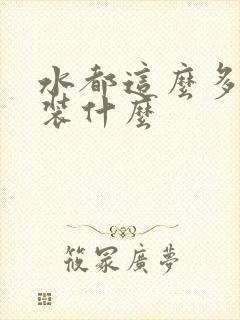 水都這麼多
裝什麼
筱冢廣夢